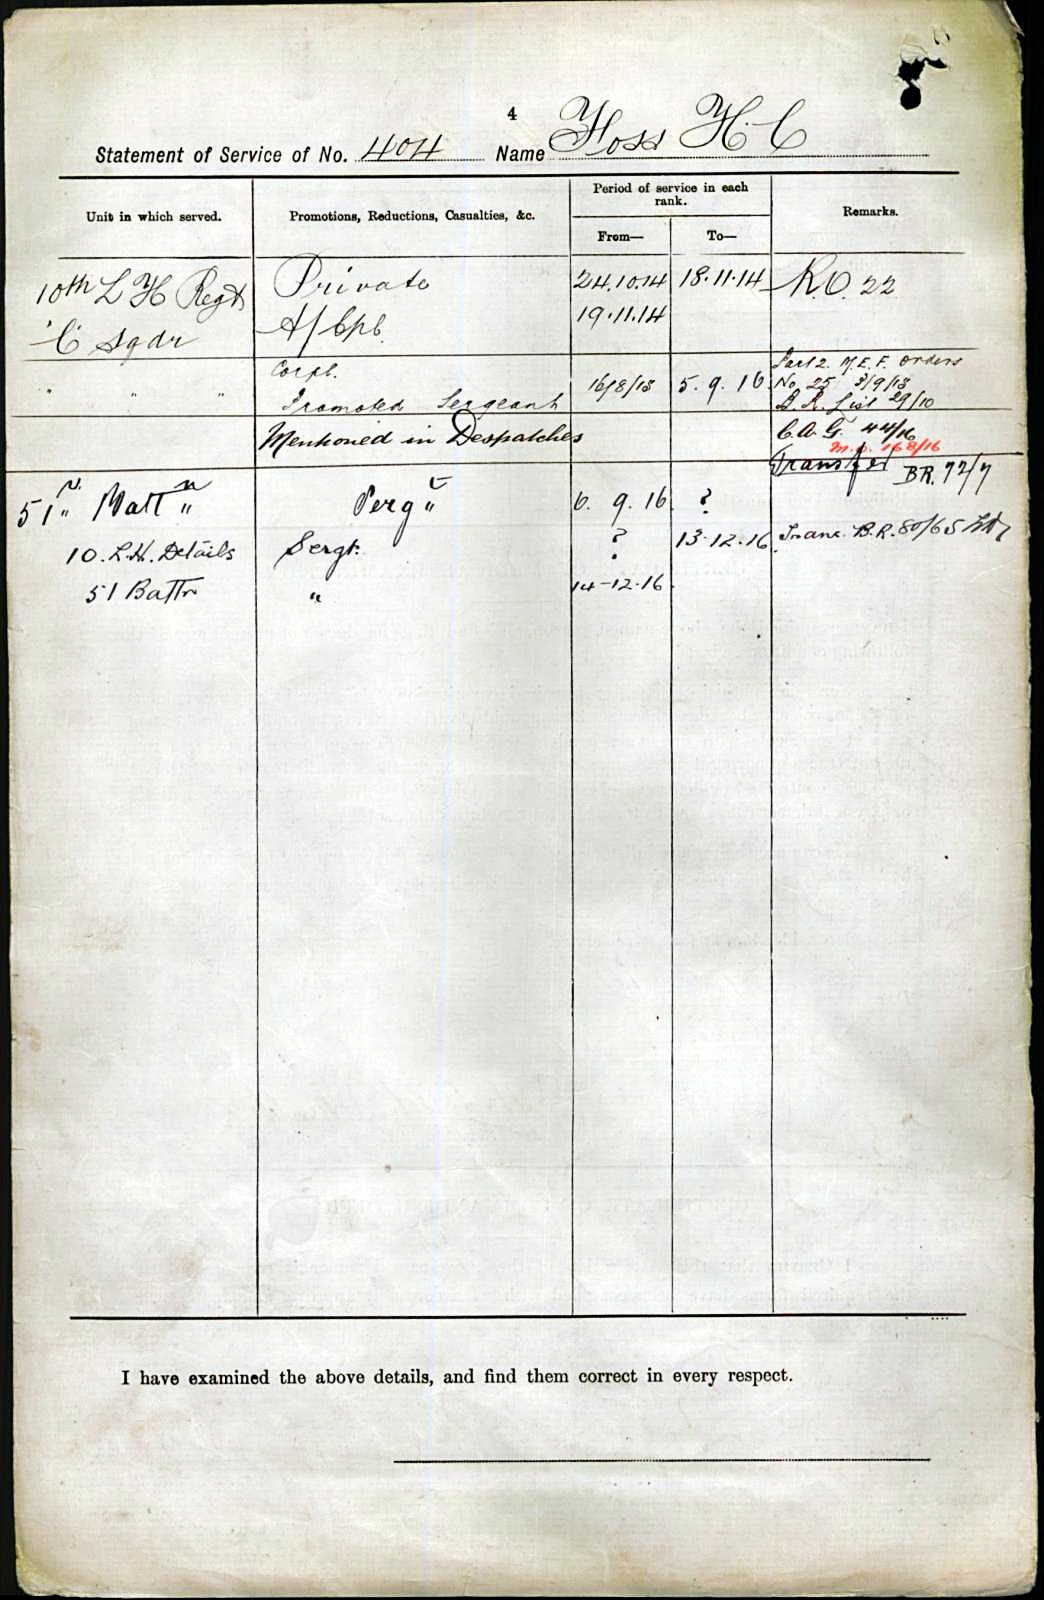 4
Statement of Service of No. 404 Name Foss H. C
Unit in which served.
Promotions, Reductions, Casualties, &c.
Period of service in each rank.
From—
To—
Remarks.
10th L H Regt Private 24.10.14 18.11.14 R.O. 22
"C" Sqdn A/Cpl. 19.11.14
Corpl.
" " " Promoted Sergeant 16/8/15 5.9.16
Part 2. M.E.F. Orders
No. 25 3/9/15
B.R. List 29/10
Mentioned in Despatches C.A.G. 44/16
M.O. 168/16
Transfer BR. 77/7
51st Battn Sergt 6.9.16 ?
10. L.H. Details Sergt. ? 13.12.16 Trans. B.R. 80/65
51 Battn " 14-12-16
I have examined the above details, and find them correct in every respect.